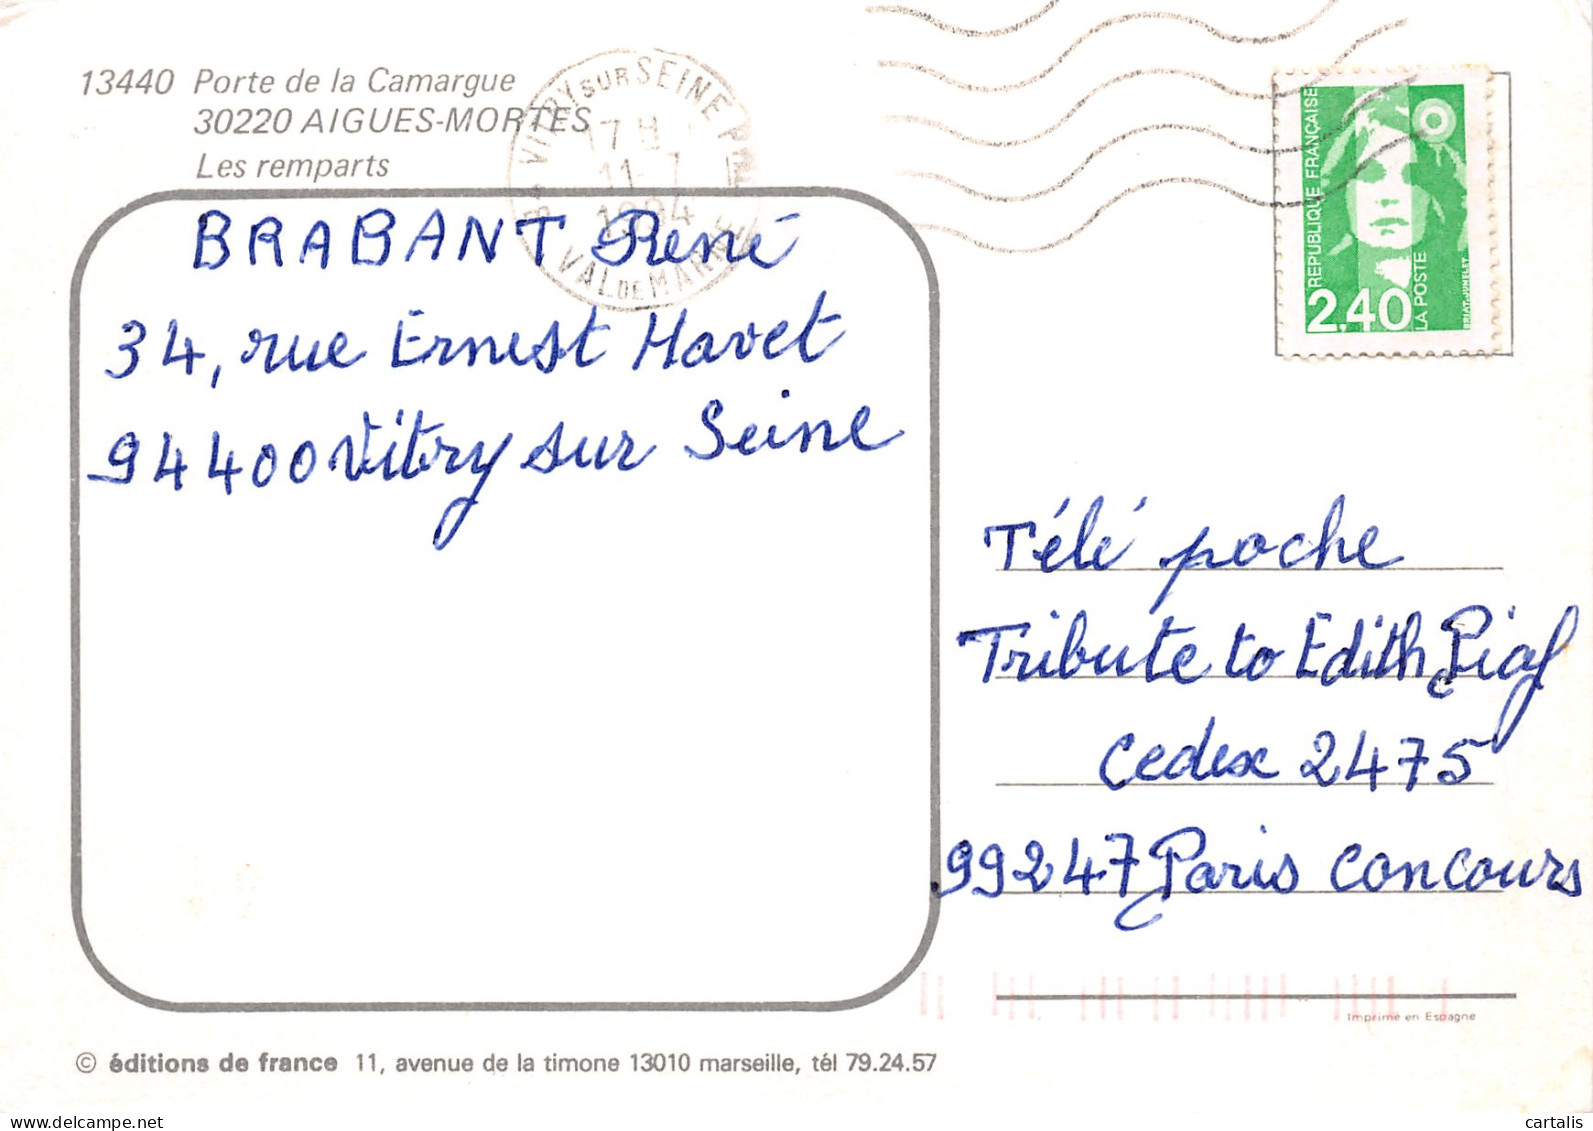 13440 Porte de la Camargue
30220 AIGUES-MORTES
Les remparts
VITRY SUR SEINE
17 H
11-7
1994
VAL DE MARNE
REPUBLIQUE FRANÇAISE
2,40
LA POSTE
BRIAT-JUMELET
BRABANT René
34, rue Ernest Havet
94400 Vitry sur Seine
Télé poche
Tribute to Edith Piaf
Cedex 2475
99247 Paris concours
Imprimé en Espagne
© éditions de france 11, avenue de la timone 13010 marseille, tél 79.24.57
delcampe.net
cartalis